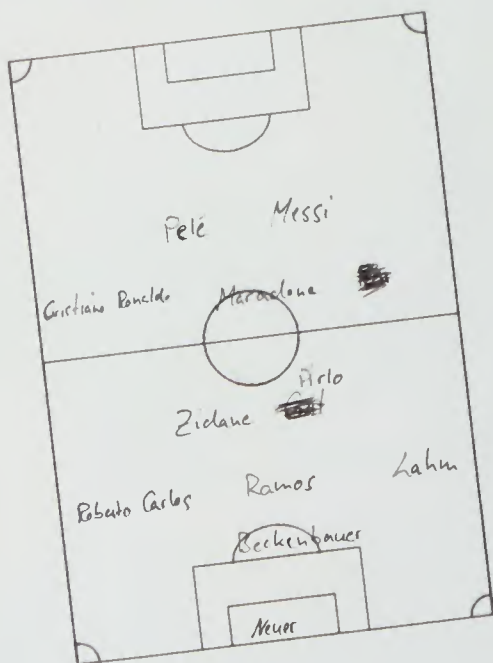 Pelé Messi
Cristiano Ronaldo Maradona
Zidane Pirlo
Roberto Carlos Ramos Lahm
Beckenbauer
Neuer